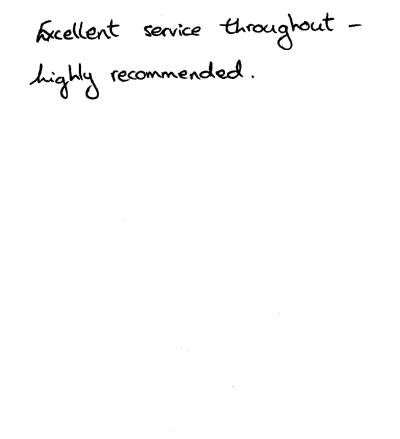 Excellent service throughout -
highly recommended.